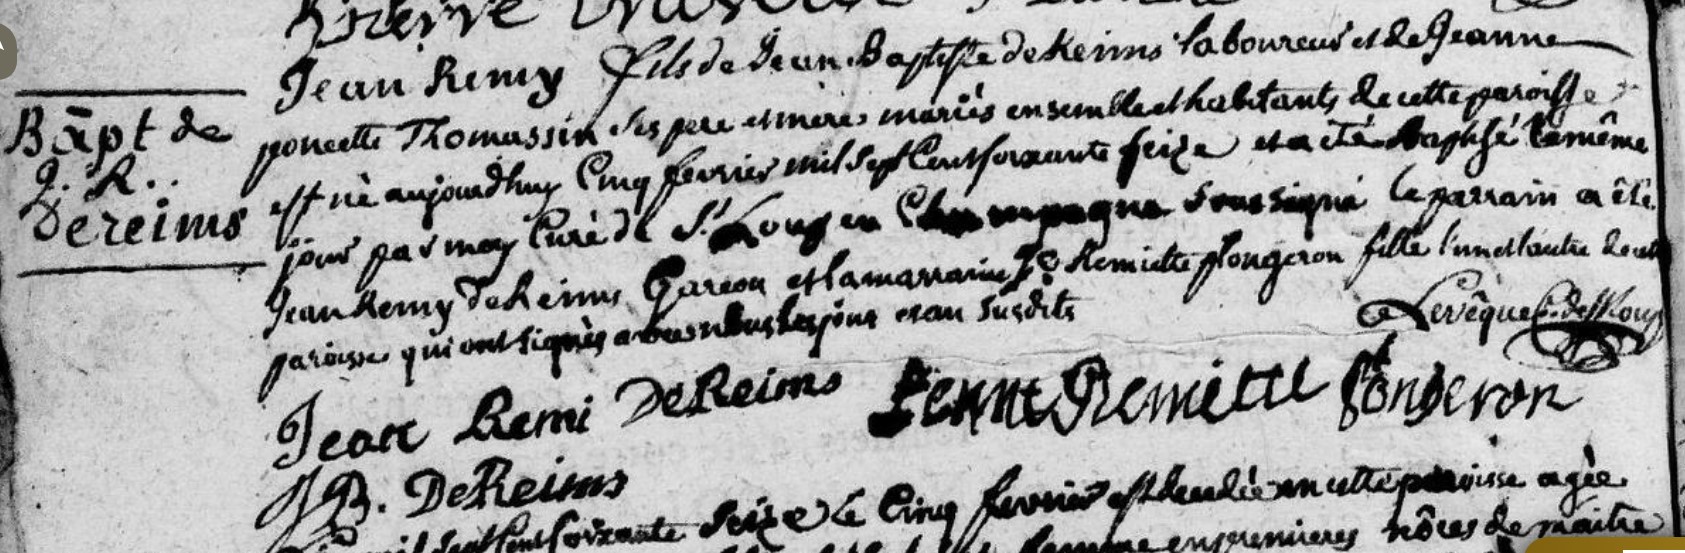 Bāpt de
J. R..
Dereims
Jean Remy fils de Jean Baptiste de Reims laboureur et de Jeanne
poncette Thomassin ses pere et mere mariés ensemble et habitants de cette paroisse
est né aujourdhuy Cinq fevrier mil sept Cent soixante seize et a eté Baptisé le même
jour par moy Curé de St Loup en Champagne soussigné le parrain a êté
Jean Remy De Reims Garcon et la marraine Remiette plongeron fille l'un et l'autre de cette
paroisse qui ont signés avec nous les jour et an susdits
Levêque C. de St Loup
Jean Remi DeReims Jenne Remiette plongeron
J B. DeReims
mil sept Cent soixante Seize Le Cinq fevrier est decedée en cette paroisse agée
femme en premieres nôces de maitre